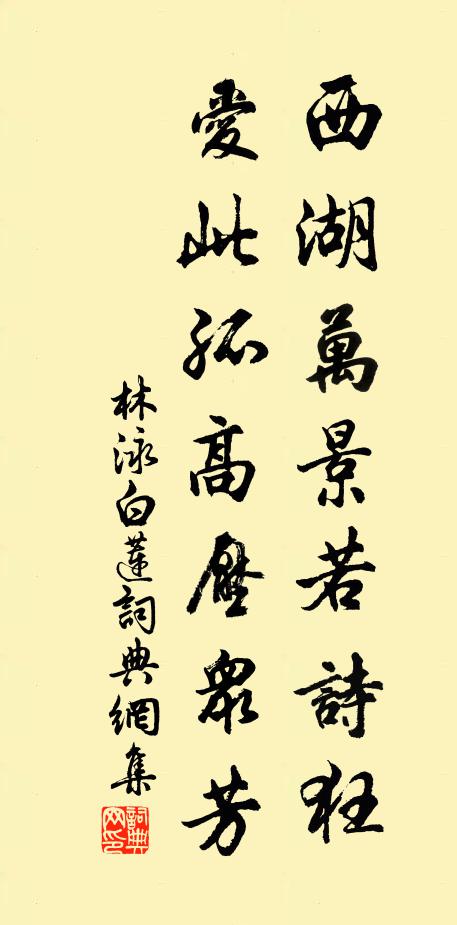 西湖萬景若詩狂
愛此孤高壓衆芳
林泳白蓮詞典網集
詞典網印